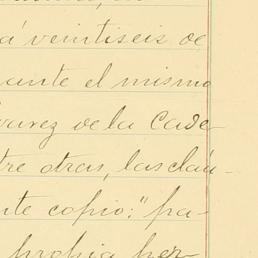 á veintiseis de
ante el mismo
varez de la Cade
tre otras, las cláu-
te copio: "pa-
propia per